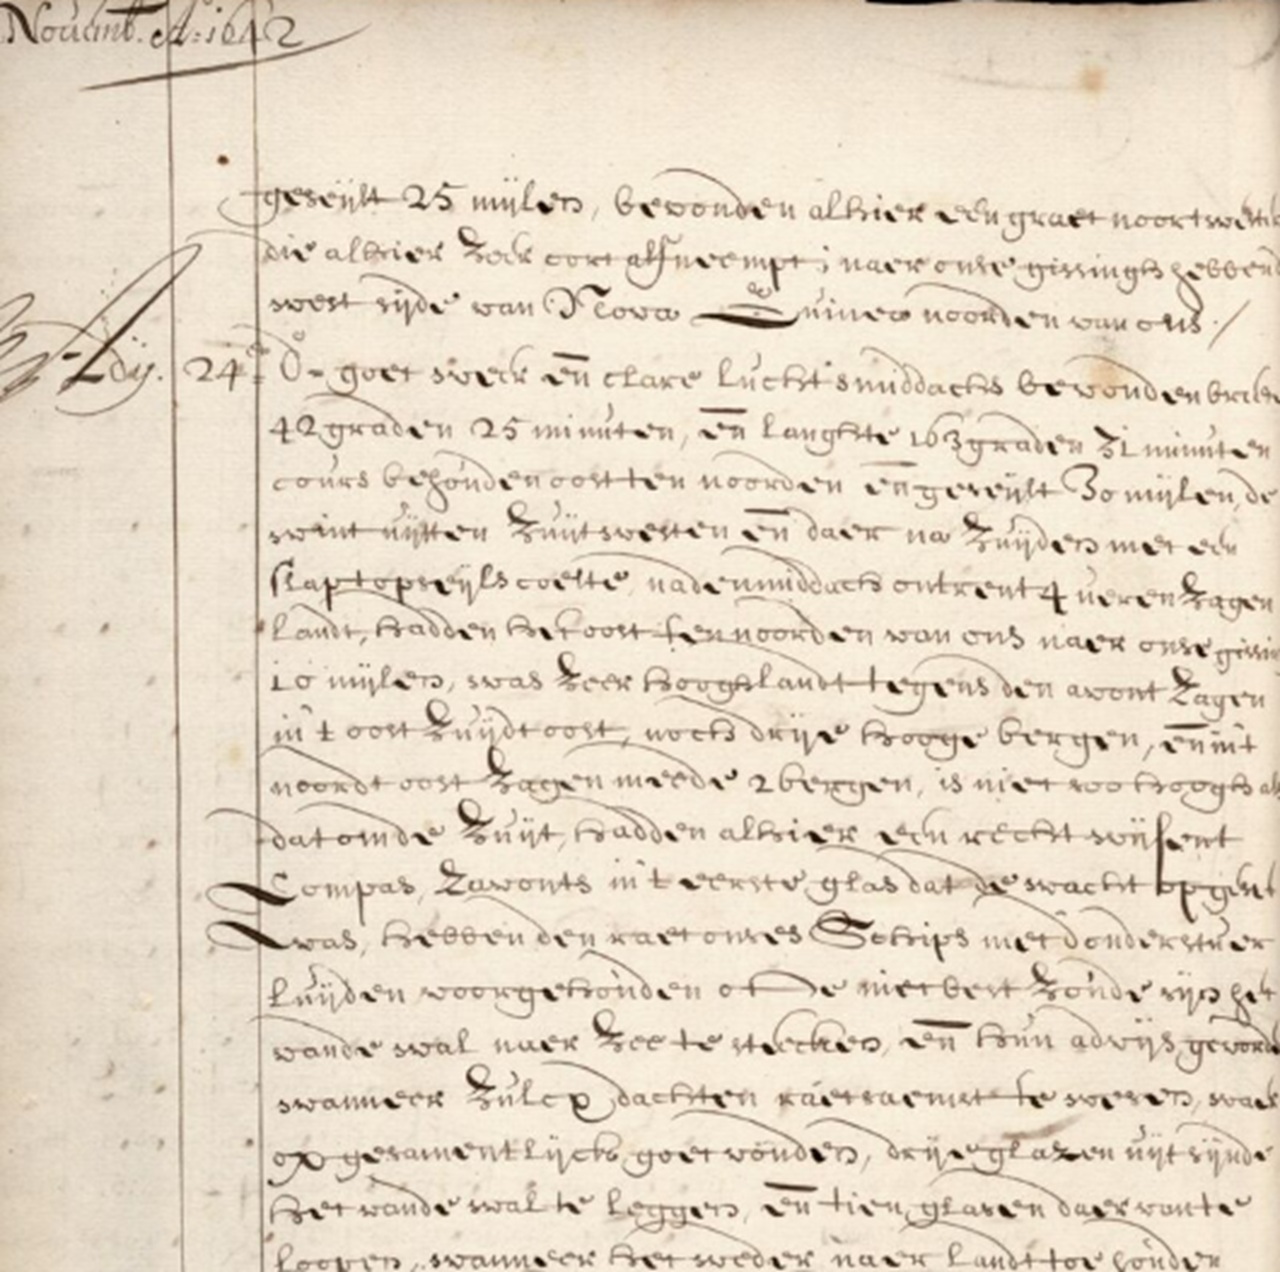 Novemb. A:o 1642
geseijlt 25 mijlen, bevonden alhier een graet noortwesteri
die alhier zeer cort affneempt; naer onse gissingh hebbend
west sijde van Nova Guinea noorden van ons /
Ady. 24en do goet weer en clare lucht smiddachs bevonden breete
42 graden 25 minuten, en langhte 163 graden 31 minuten
cours behouden oost ten noorden en geseijlt 30 mijlen, de
wint uijtten zuijtwesten en daer na zuijden met een
slap topseijls coelte, naden middach ontrent 4 ueren zagen
landt, hadden het oost ten noorden van ons naer onse gissin
10 mijlen, was zeer hoogh landt tegens den avont zagen
in't oost zuijdt oost, noch drije hooge bergen, en int
noordt oost zagen meede 2 bergen, is niet soo hoogh als
dat omde zuijt, hadden alhier een recht wijsent
Compas, zavonts int eerste glas dat de wacht opgeset
was, hebben den raet onses Schips met donderstuer
luijden voorgehouden of de niet best zoude sijn het
vande wal naer zee te steecken, en hun advijs gevord
wanneer zulcx dachten raetsaemst te wesen, waer
op gesamentlijck goet vonden, drije glazen uijt sijnde
het vande wal te leggen, en tien glasen daer van te
loopen, wanneer het weder naer landt toe houden